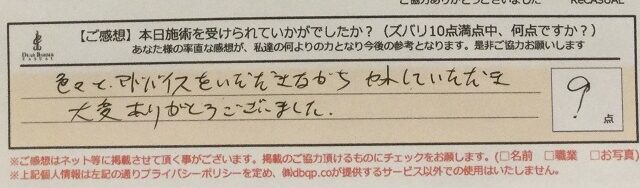 ご協力ありがとうございました ReCASUAL
DEAR BARBER
【ご感想】本日施術を受けられていかがでしたか？（ズバリ10点満点中、何点ですか？）
あなた様の率直な感想が、私達の何よりの力となり今後の参考となります。是非ご協力お願いします
色々と、アドバイスをいただきながら していただき
大変ありがとうございました。
9
点
※ご感想はネット等に掲載させて頂く事がございます。掲載のご協力頂けるものにチェックをお願します。(□名前 □職業 □お写真)
※上記個人情報は左記の通りプライバシーポリシーを定め、㈱dbqp.coが提供するサービス以外での使用はいたしません。